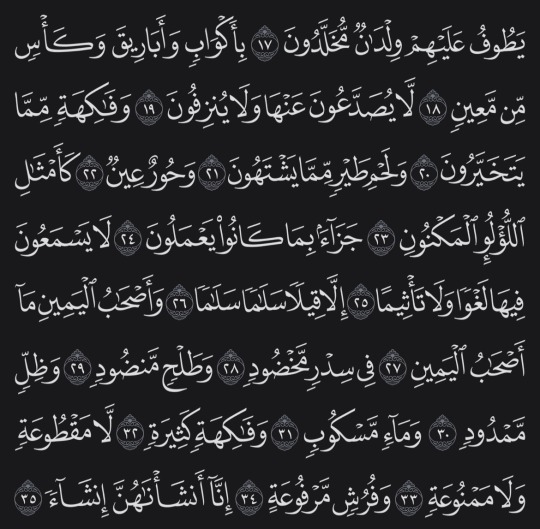 يَطُوفُ عَلَيْهِمْ وِلْدَٰنٌ مُّخَلَّدُونَ ١٧ بِأَكْوَابٍ وَأَبَارِيقَ وَكَأْسٍ
مِّن مَّعِينٍ ١٨ لَّا يُصَدَّعُونَ عَنْهَا وَلَا يُنزِفُونَ ١٩ وَفَٰكِهَةٍ مِّمَّا
يَتَخَيَّرُونَ ٢٠ وَلَحْمِ طَيْرٍ مِّمَّا يَشْتَهُونَ ٢١ وَحُورٌ عِينٌ ٢٢ كَأَمْثَٰلِ
ٱللُّؤْلُؤِ ٱلْمَكْنُونِ ٢٣ جَزَآءًۢ بِمَا كَانُوا۟ يَعْمَلُونَ ٢٤ لَا يَسْمَعُونَ
فِيهَا لَغْوًا وَلَا تَأْثِيمًا ٢٥ إِلَّا قِيلًا سَلَٰمًا سَلَٰمًا ٢٦ وَأَصْحَٰبُ ٱلْيَمِينِ مَآ
أَصْحَٰبُ ٱلْيَمِينِ ٢٧ فِى سِدْرٍ مَّخْضُودٍ ٢٨ وَطَلْحٍ مَّنضُودٍ ٢٩ وَظِلٍّ
مَّمْدُودٍ ٣٠ وَمَآءٍ مَّسْكُوبٍ ٣١ وَفَٰكِهَةٍ كَثِيرَةٍ ٣٢ لَّا مَقْطُوعَةٍ
وَلَا مَمْنُوعَةٍ ٣٣ وَفُرُشٍ مَّرْفُوعَةٍ ٣٤ إِنَّآ أَنشَأْنَٰهُنَّ إِنشَآءً ٣٥